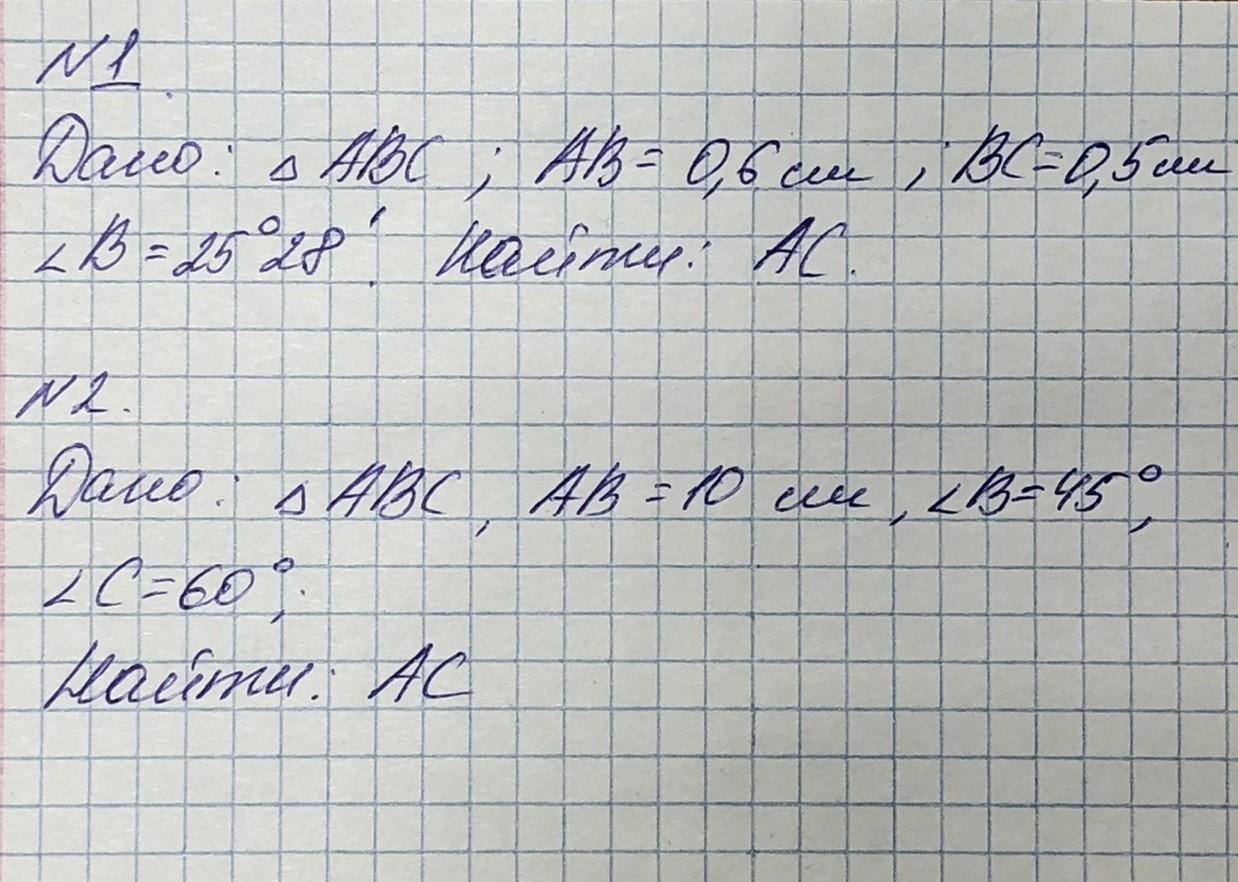 N1
Дано: △ ABC ; AB = 0,6 см ; BC=0,5 см
∠B = 25°28'. Найти: AC.
N2.
Дано: △ ABC, AB = 10 см, ∠B=45°,
∠C=60°;
Найти: AC